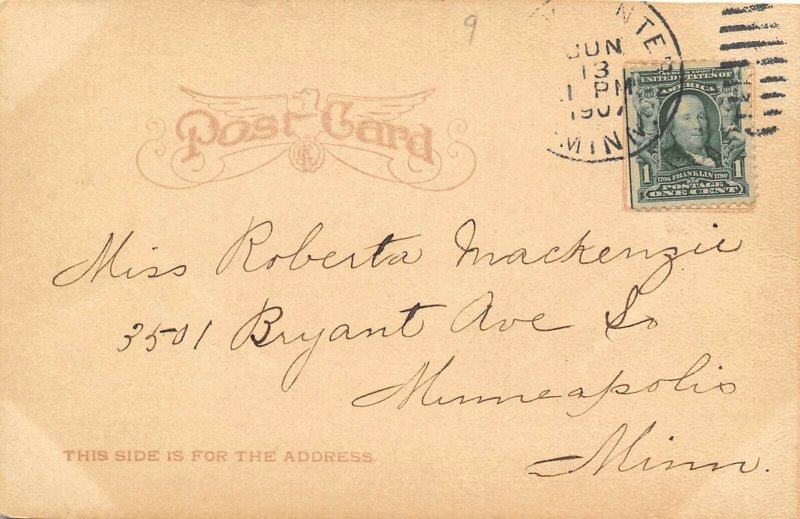 9
JUN
13
1 PM
1907
MINN
SERIES 1902
UNITED STATES OF
AMERICA
1 1
1706 FRANKLIN 1790
POSTAGE
ONE CENT
Post Card
Miss Roberta Mackenzie
3501 Bryant Ave So
Minneapolis
Minn.
THIS SIDE IS FOR THE ADDRESS.